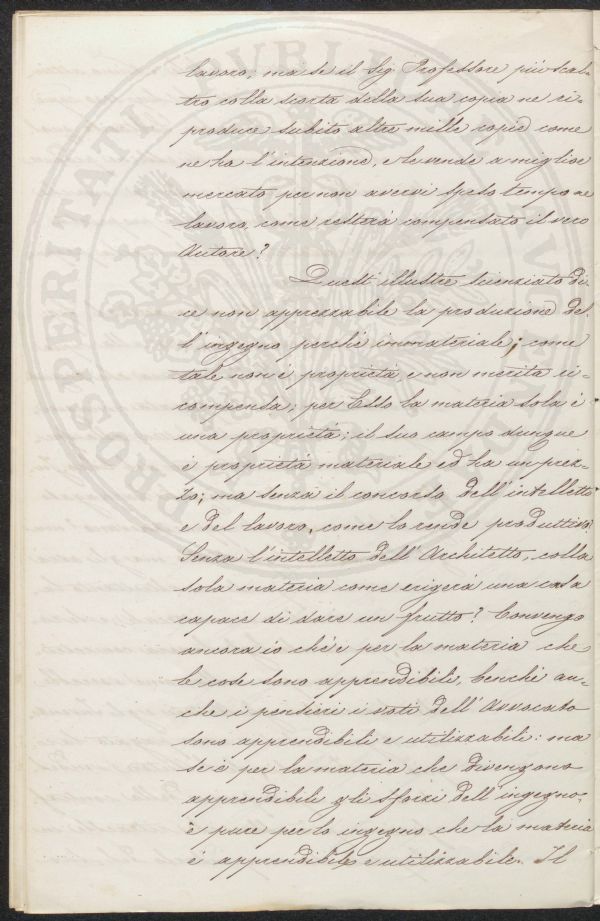 lavoro, ma se il Sig. Professore più scal-
tro colla scorta della sua copia ne ri-
produce subito altre mille copie come
ne ha l'intenzione, e le vende a miglior
mercato per non avervi speso tempo ne
lavoro, come resterà compensato il vero
Autore?
Quest' illustre scienziato di-
ce non apprezzabile la produzione del-
l'ingegno perchè immateriale; come
tale non è proprietà, e non merita ri-
compensa; per Esso la materia sola è
una proprietà; il suo campo dunque
è proprietà materiale ed ha un prez-
zo; ma senza il concorso dell'intelletto
e del lavoro, come lo rende produttivo?
Senza l'intelletto dell'Architetto, colla
sola materia come erigerà una casa
capace di dare un frutto? Convengo
ancora io ch'è per la materia che
le cose sono apprendibili, benchè an-
che i pensieri i voti dell'Avvocato
sono apprendibili e utilizzabili: ma
se è per la materia che divengono
apprendibili gli sforzi dell'ingegno,
è pure per lo ingegno che la materia
è apprendibile e utilizzabile. Il
PROSPERITATI PVBLICAE